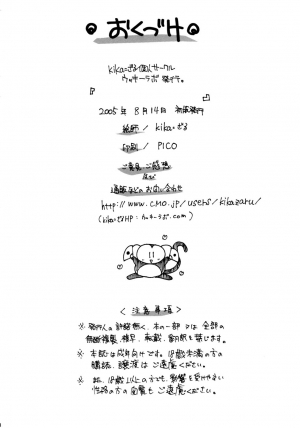 おくづけ
kikaざる個人サークル
ウッキーラボ 発行。
2005年 8月14日 初版発行
絵師 / kikaざる
印刷 / PICO
ご意見・ご感想
及び
通販などのお問い合わせ
http://www.CMO.jp/users/kikazaru/
(kikaざるHP:ウッキーラボ.com)
〈 注意事項 〉
※ 発行人の許諾無く、本の一部 又は 全部の
無断複製、模写、転載、翻刻を禁じます。
※ 本誌は成年向けです。18歳未満の方の
購読、譲渡は ご遠慮ください。
※ 又、18歳以上の方でも、影響を受けやすい
性格の方の閲覧も ご遠慮ください。